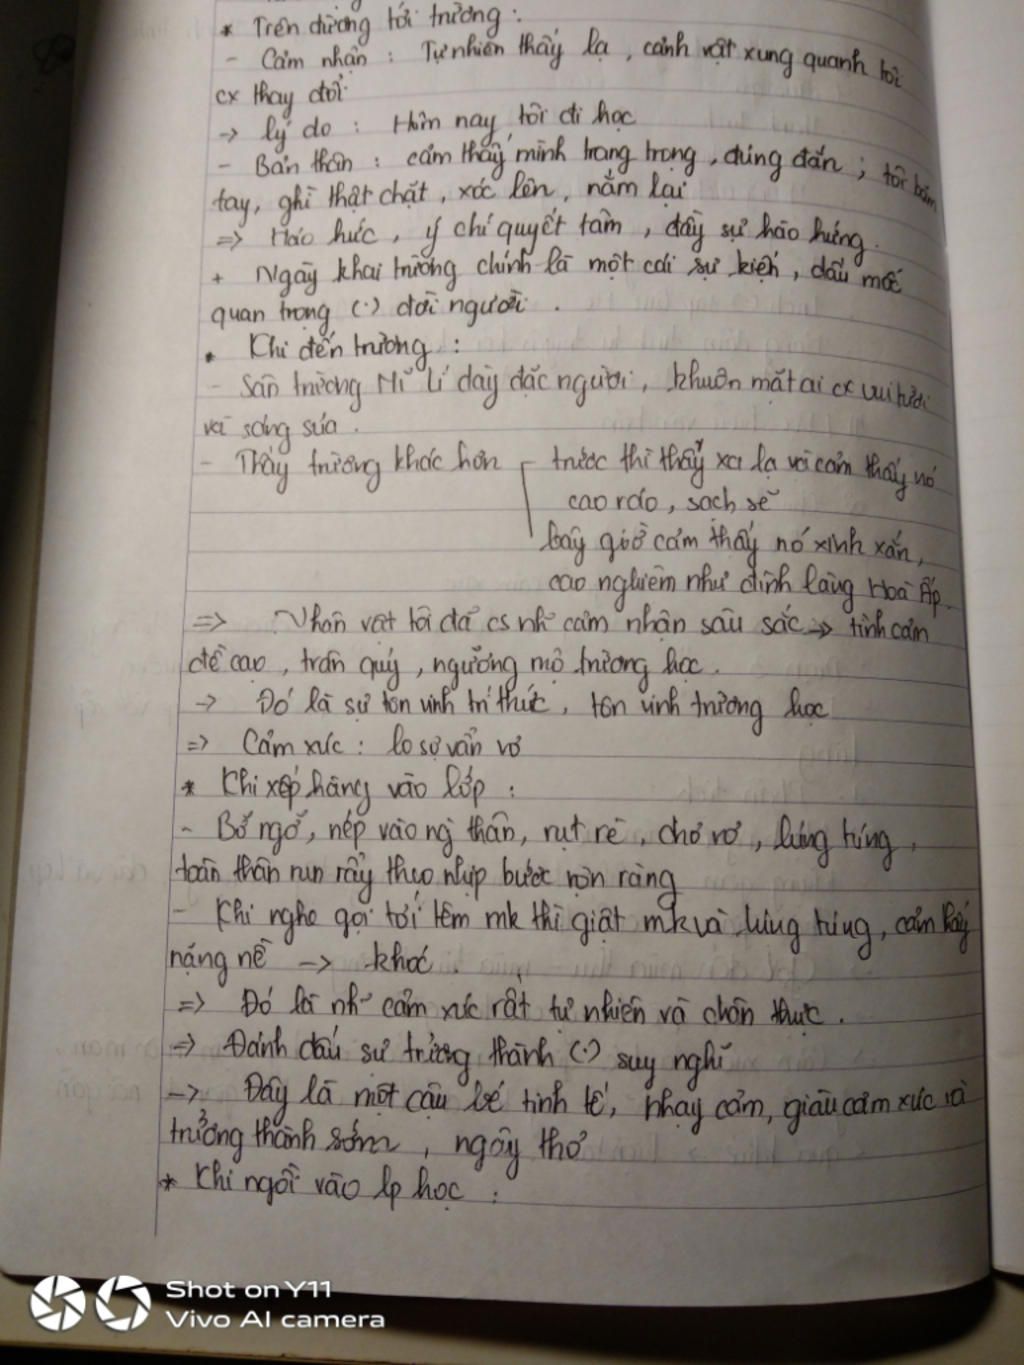 * Trên đường tới trường :
- Cảm nhận : Tự nhiên thấy lạ , cảnh vật xung quanh tôi
cx thay đổi
-> lý do : Hôm nay tôi đi học
- Bản thân : cảm thấy mình trang trọng , đứng đắn ; tôi bặm
tay, ghì thật chặt , xóc lên , nắm lại
=> Háo hức , ý chí quyết tâm , đầy sự hào hứng .
+ Ngày khai trường chính là một cái sự kiện , dấu mốc
quan trọng (.) đời người .
* Khi đến trường :
- Sân trường Mĩ Lí dày đặc người , khuôn mặt ai cx vui tươi
và sáng sủa .
- Thấy trường khác hơn
trước thì thấy xa lạ và cảm thấy nó
cao ráo , sạch sẽ
bây giờ cảm thấy nó xinh xắn ,
oai nghiêm như đình làng Hoà Ấp .
=> Nhân vật tôi đã cs nh~ cảm nhận sâu sắc -> tình cảm
đề cao , trân quý , ngưỡng mộ trường học .
-> Đó là sự tôn vinh tri thức , tôn vinh trường học
=> Cảm xúc : lo sợ vẩn vơ
* Khi xếp hàng vào lớp :
- Bỡ ngỡ , nép vào ng thân , rụt rè , chơ vơ , lúng túng ,
toàn thân run rẩy theo nhịp bước rộn ràng
- Khi nghe gọi tới têm mk thì giật mk và lúng túng , cảm thấy
nặng nề -> khóc .
=> Đó là nh~ cảm xúc rất tự nhiên và chân thực .
=> Đánh dấu sự trưởng thành (.) suy nghĩ
-> Đây là một cậu bé tinh tế , nhạy cảm , giàu cảm xúc và
trưởng thành sớm , ngây thơ
* Khi ngồi vào lp học :
Shot on Y11
Vivo AI camera